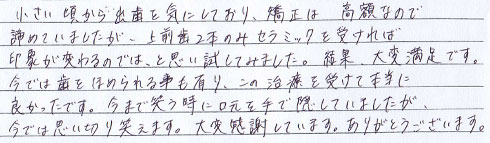 小さい頃から出歯を気にしており、矯正は高額なので
諦めていましたが、上前歯2本のみセラミックを受ければ
印象が変わるのでは、と思い試してみました。結果、大変満足です。
今では歯をほめられる事も有り、この治療を受けて本当に
良かったです。今まで笑う時に口元を手で隠していましたが、
今では思い切り笑えます。大変感謝しています。ありがとうございます。